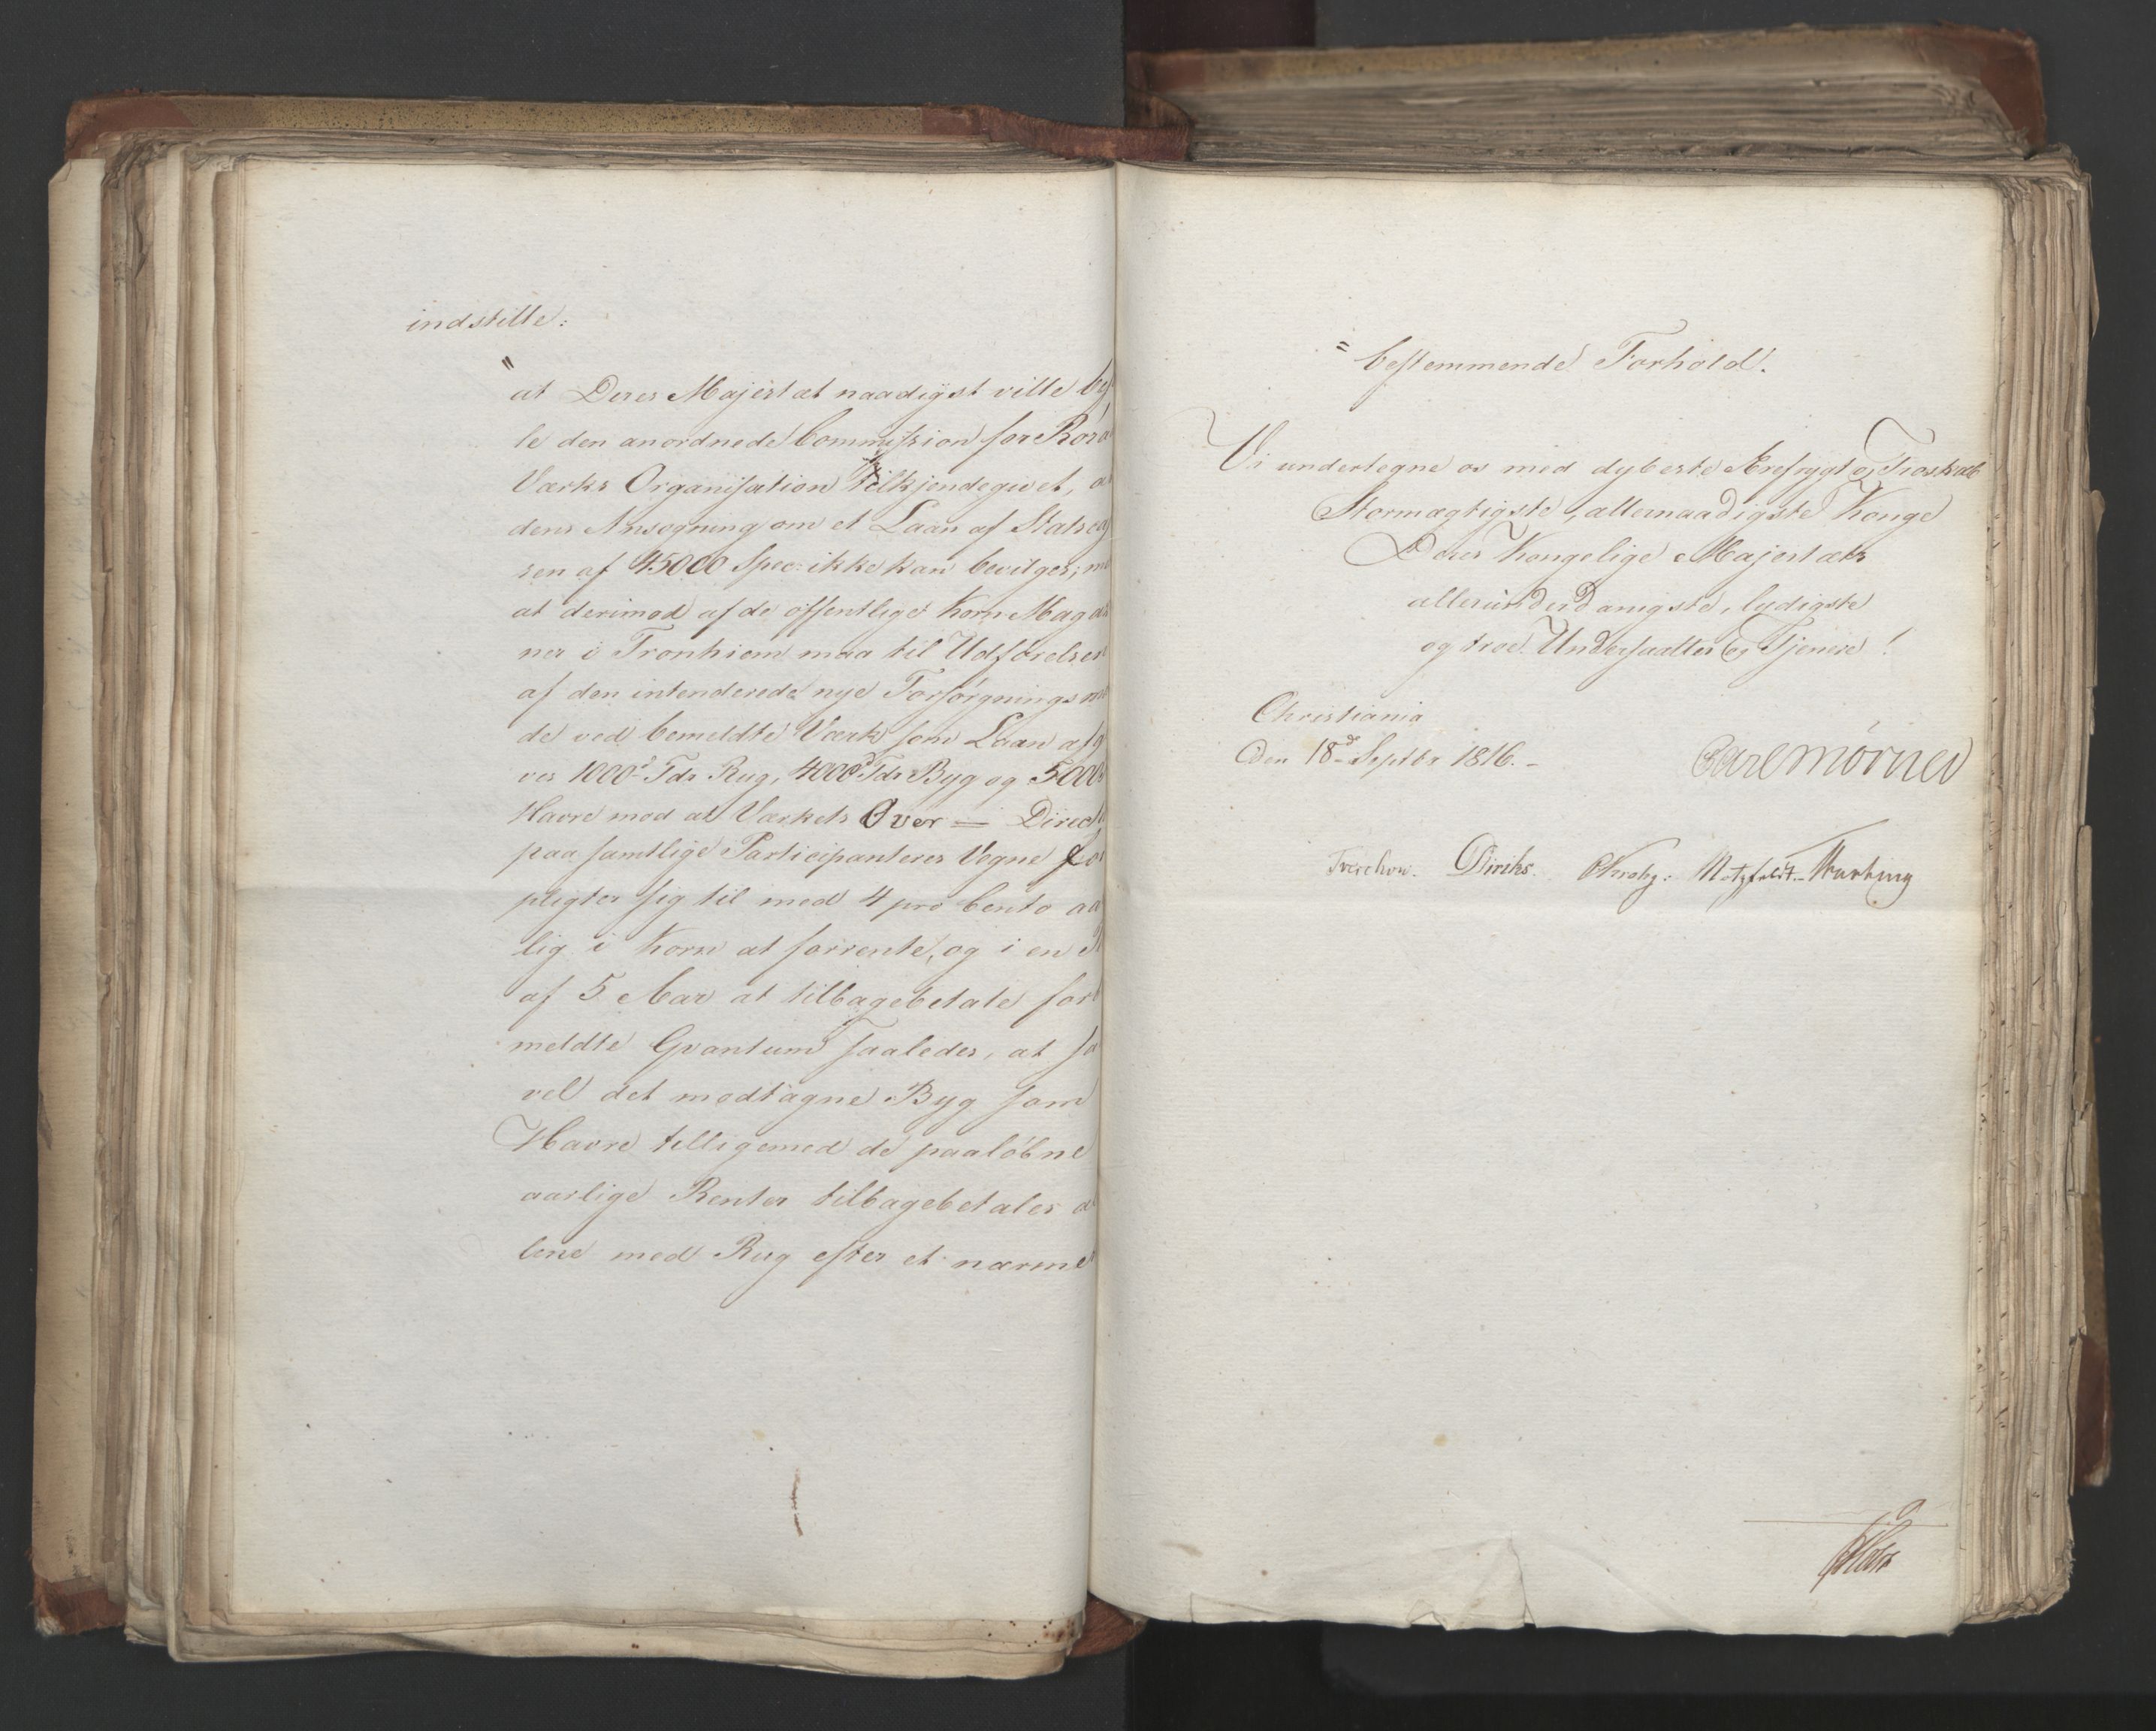 indstille:
" at Deres Majestæt naadigst ville bef
le den anordnede Commission for Röra
Værks Organisation tilkjendegivet, at
dens Ansøgning om et Laan af Statsca
sen af 45000 Spec: ikke kan bevilges; me
at derimod af de offentlige Korn Magazi
ner i Tronhiem maa til Udförelsen
af den intenderede nye Forsörgnings maa
de ved bemeldte Værk som Laan afgi
ves 1000de Tdr Rug, 4000de Tdr Byg og 5000
Havre mod at Værkets Over = Direct
paa samtlige Participanteres Vegne for
pligter sig til med 4 pro Cento aa
lig i Korn at forrente, og i en
af 5 Aar at tilbagebetale for
meldte Qvantum saaledes, at saa
vel det modtagne Byg som
Havre tilligemed de paalöbne
aarlige Renter tilbagebetales al
lene med Rug efter et nærmer
= bestemmende Forhold!
Vi undertegne os med dybeste Ærefrygt og Troskab
Stormægtigste, allernaadigste Konge
Deres Kongelige Majestæts
allerunderdanigste, lydigste
og troe Undersaatter og Tjenere!
Christiania
den 18de Septbr 1816. -
Carl Mörner
Treschow. Diriks. CKrohg: Motzfeldt.